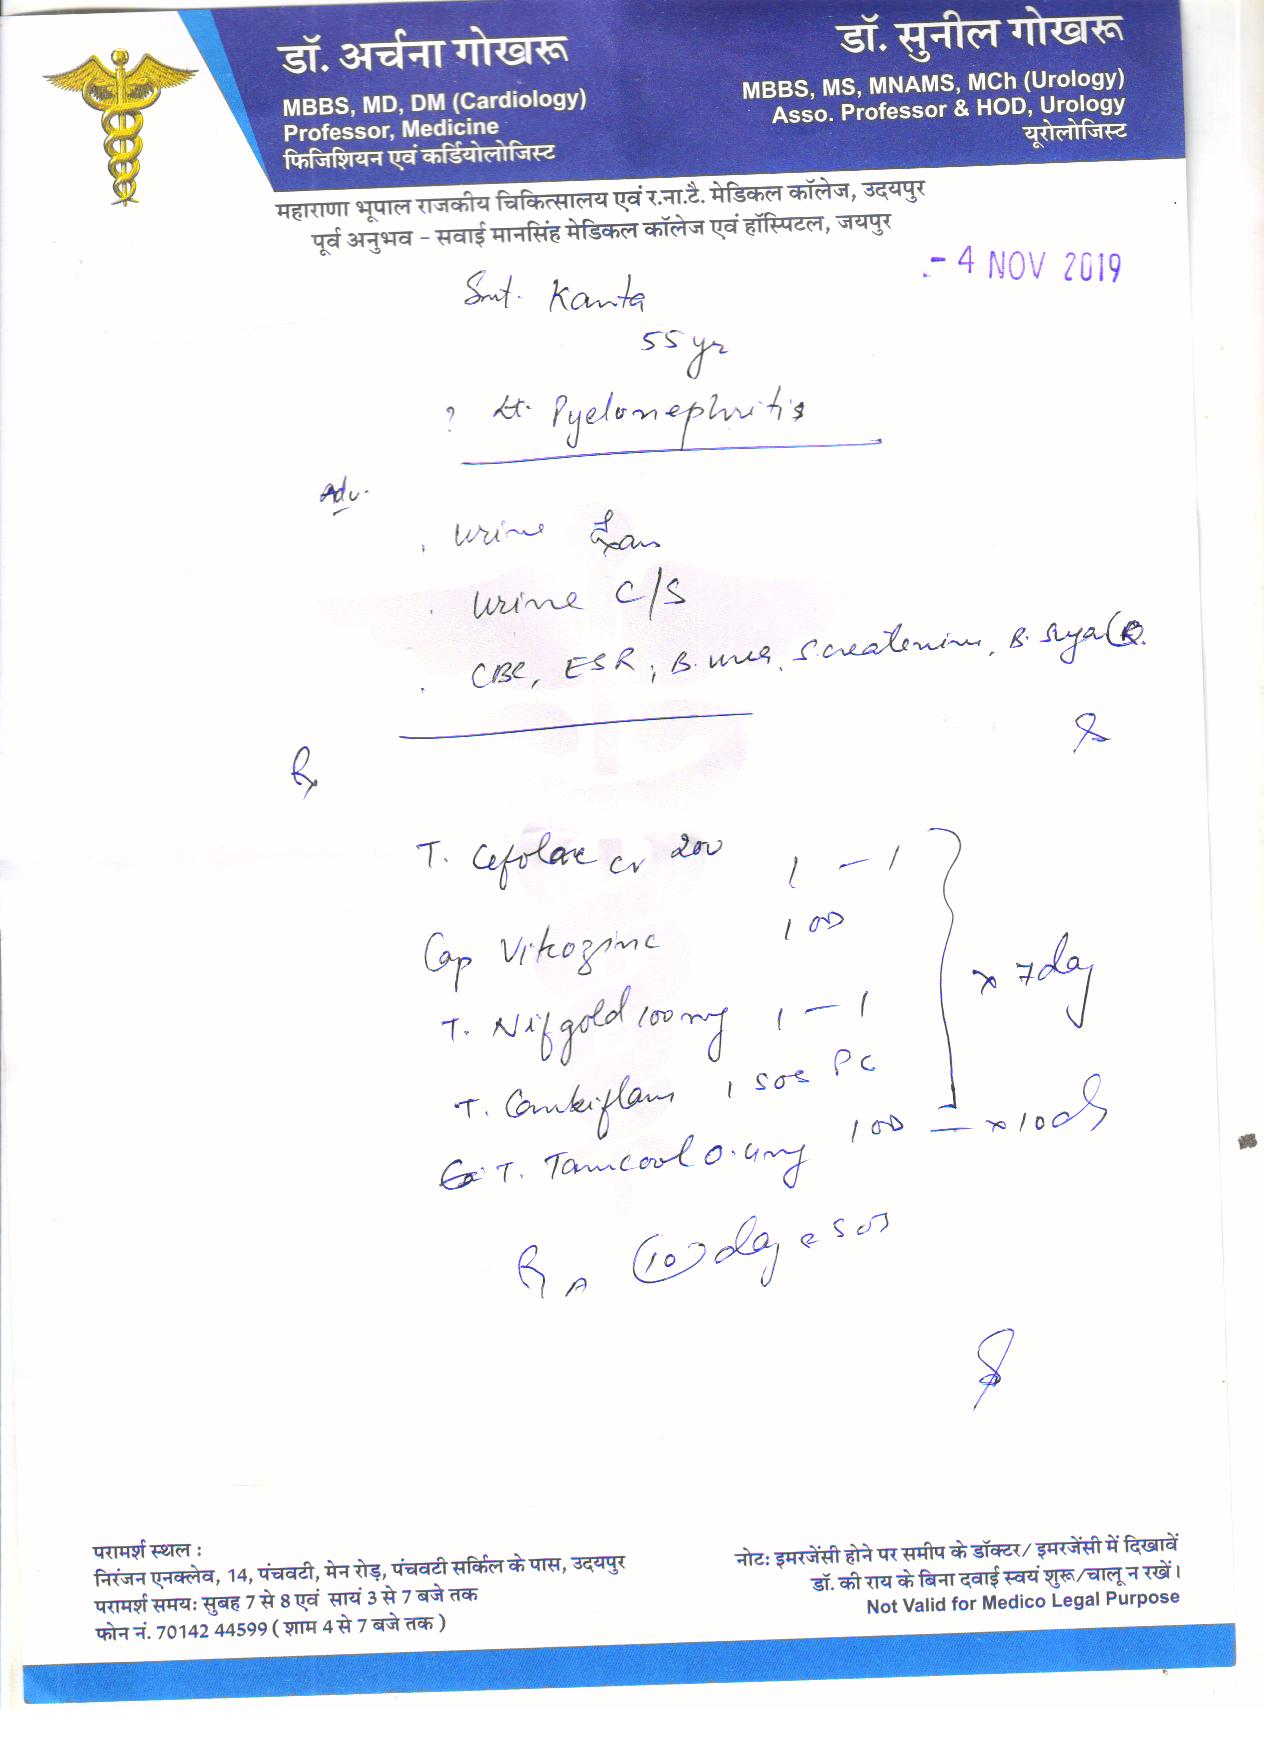 डॉ. अर्चना गोखरू
MBBS, MD, DM (Cardiology)
Professor, Medicine
फिजिशियन एवं कर्डियोलोजिस्ट
डॉ. सुनील गोखरू
MBBS, MS, MNAMS, MCh (Urology)
Asso. Professor & HOD, Urology
यूरोलोजिस्ट
महाराणा भूपाल राजकीय चिकित्सालय एवं र.ना.टै. मेडिकल कॉलेज, उदयपुर
पूर्व अनुभव – सवाई मानसिंह मेडिकल कॉलेज एवं हॉस्पिटल, जयपुर
- 4 NOV 2019
Smt. Kanta
55 yr
? Lt. Pyelonephritis
Adv.
. Urine
. Urine C/S
. CBC, ESR, B. urea, S. createnine, B. Sugar (R).
Rx
T. Cefolac CV 200 1 – 1
Cap Vitcozinc 1 OD
T. Nifgold 100 mg 1 – 1
x 7 day
T. Combiflam 1 SOS PC
T. Tamcool 0.4mg 1 OD – x 10 d
R A (10) day c SOS
परामर्श स्थल :
निरंजन एनक्लेव, 14, पंचवटी, मेन रोड़, पंचवटी सर्किल के पास, उदयपुर
परामर्श समय: सुबह 7 से 8 एवं सायं 3 से 7 बजे तक
फोन नं. 70142 44599 ( शाम 4 से 7 बजे तक )
नोट: इमरजेंसी होने पर समीप के डॉक्टर/ इमरजेंसी में दिखावें
डॉ. की राय के बिना दवाई स्वयं शुरू/चालू न रखें।
Not Valid for Medico Legal Purpose